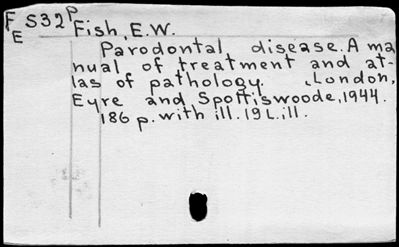 F S32P Fish, E.W.
E
Parodontal disease. A ma
nual of treatment and at-
las of pathology. London,
Eyre and Spottiswoode, 1944.
186 p. with ill. 19 L. ill.